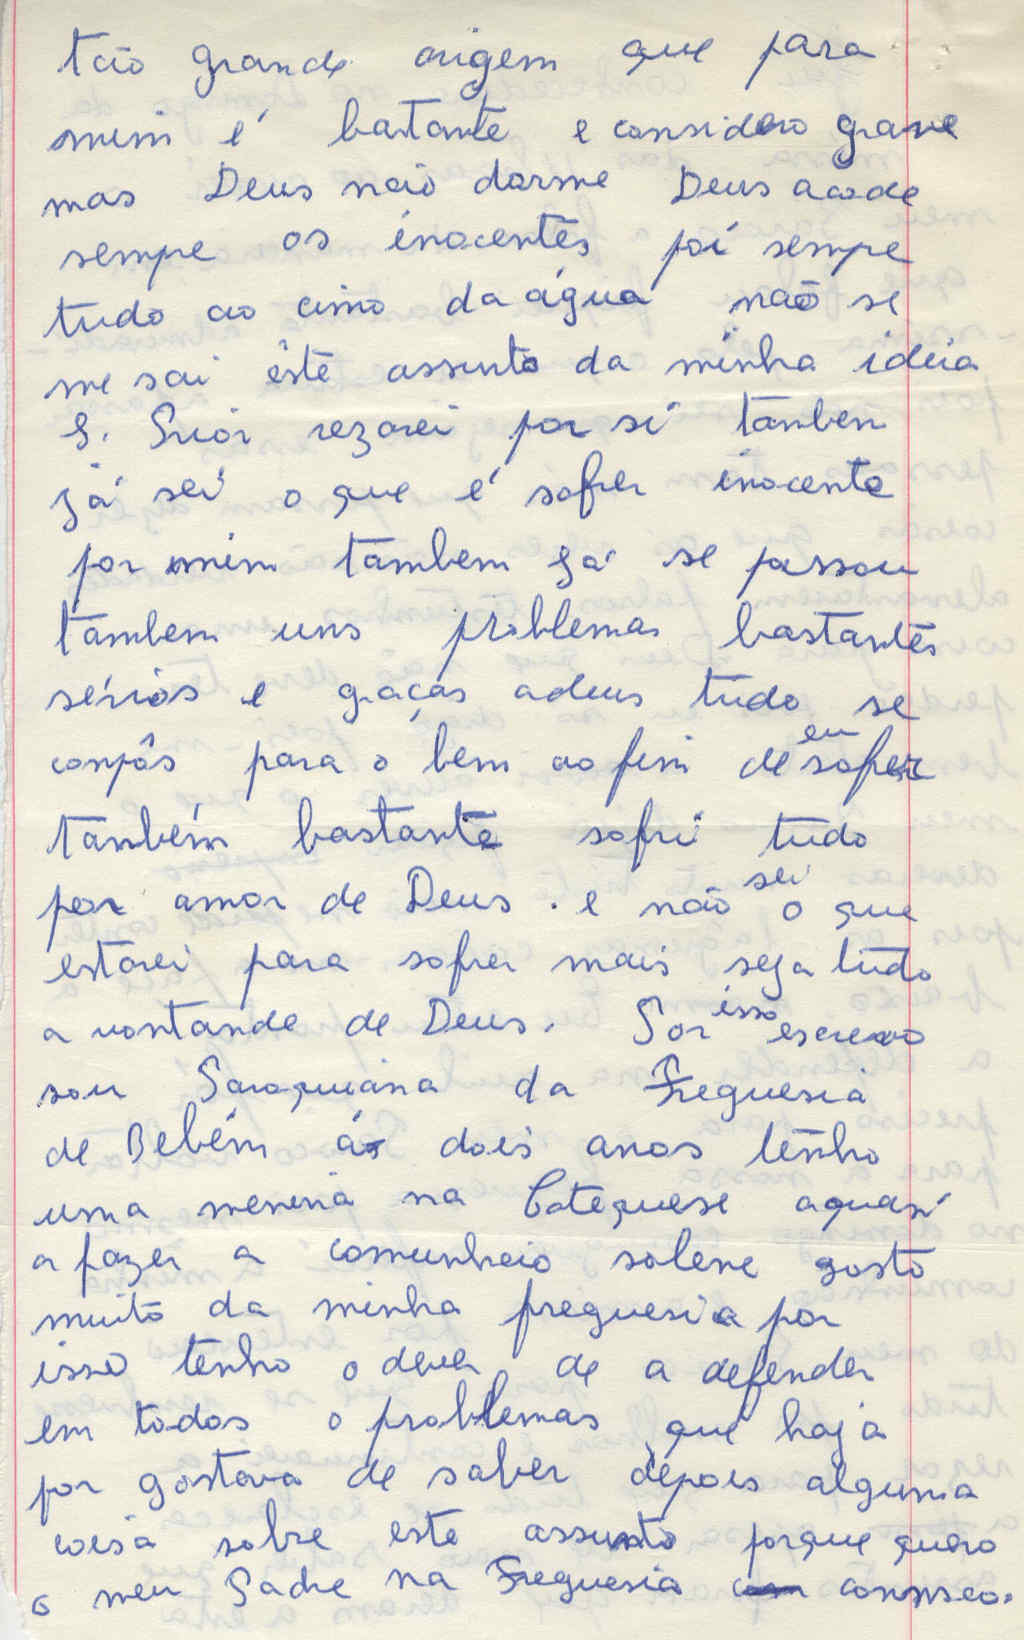 tão grande origem que para
mim é bastante e considero grave
mas Deus não dorme Deus acode
sempe os inocentes foi sempe
tudo ao cimo da água não se
me sai êste assunto da minha ideia
S. Prior rezarei por si tanben
já sei o que é sofrer inocente
por mim tambem já se passou
tambem uns problemas bastantes
sérios e graças adeus tudo se
conpôs para o bem ao fim de eu sofrer
tanbém bastante sofri tudo
por amor de Deus. e não sei o que
estarei para sofrer mais seja tudo
a vontande de Deus. Por isso escrevo
sou Paroquiana da Freguesia
de Belém ás dois anos tenho
uma menina na Catequese aquasi
a fazer a comunhão solene gosto
muito da minha freguesia por
isso tenho o dever de a defender
em todos o problemas que haja
por gostava de saber depois alguma
coisa sobre este assunto porque quero
o meu Padre na Freguesia connsco.